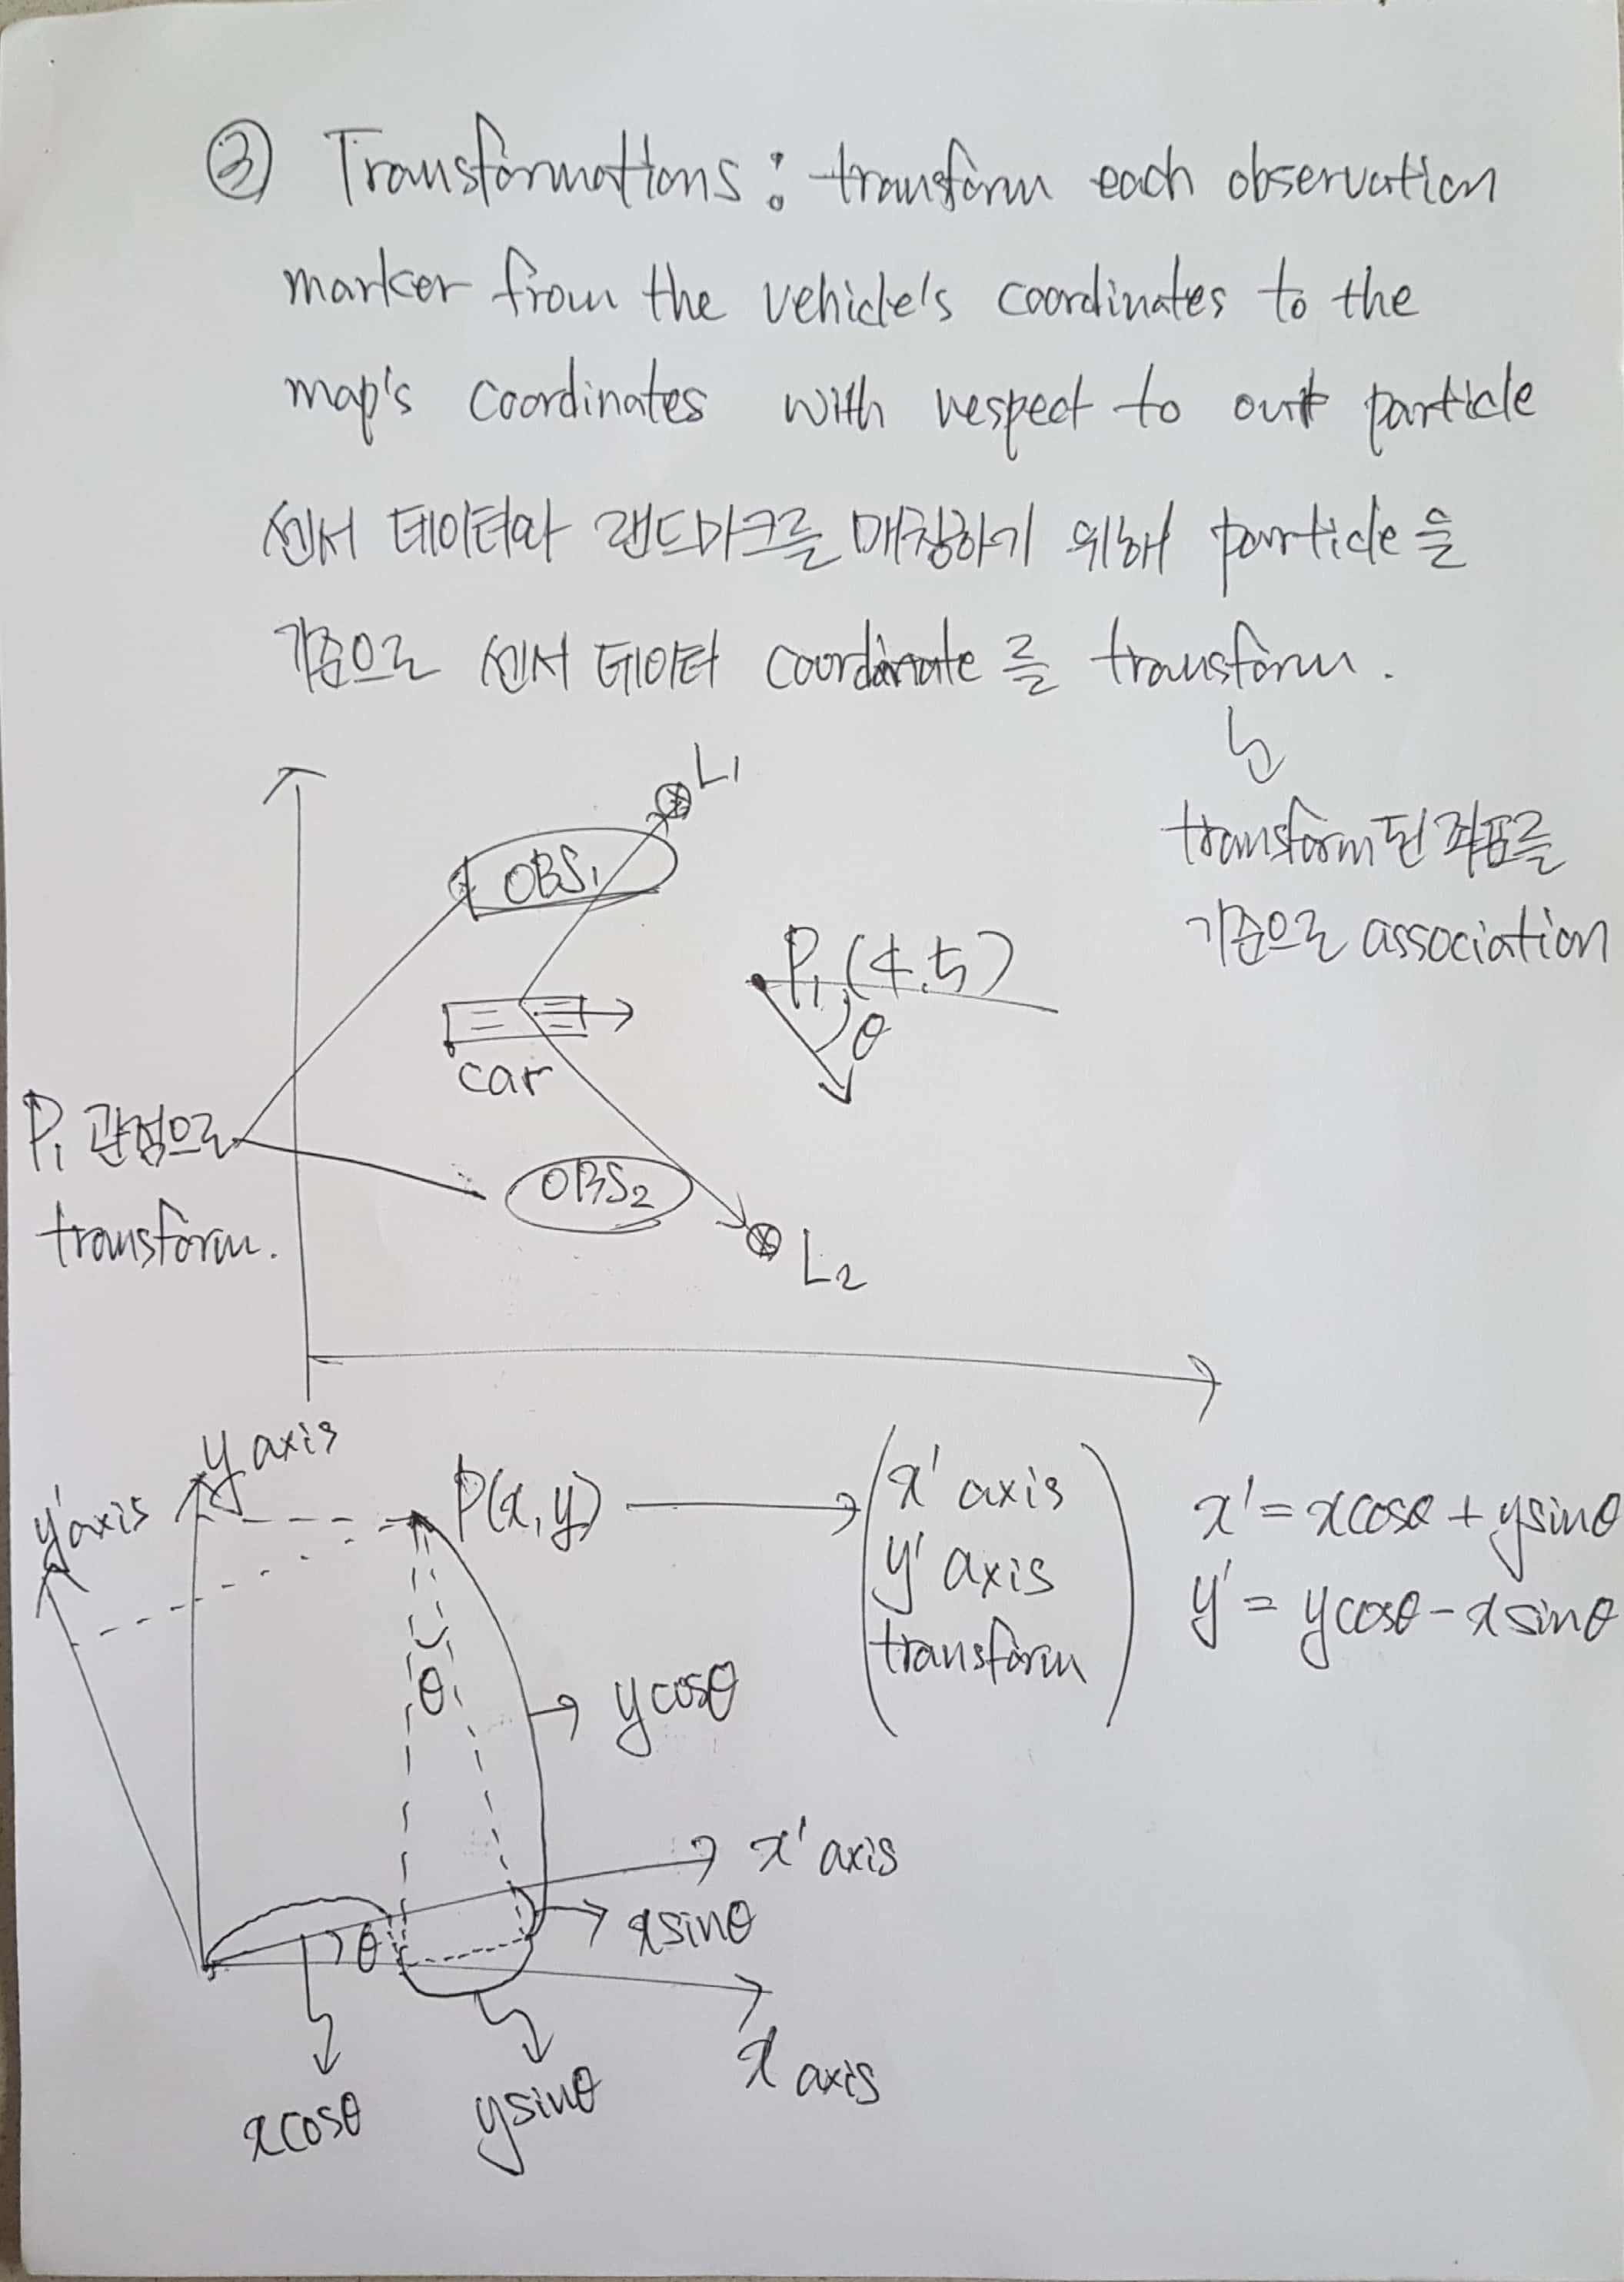 ③ Transformations : transform each observation
marker from the vehicle's coordinates to the
map's coordinates with respect to our particle
센서 데이터와 랜드마크를 매칭하기 위해 particle을
기준으로 센서 데이터 coordinate를 transform.
transform된 좌표를
기준으로 association
L1
OBS1
P1 (4.5)
θ
car
P1 관점으로
transform.
OBS2
L2
y axis
y' axis
P(x,y)
x' axis
y' axis
transform
x' = xcosθ + ysinθ
y' = ycosθ - xsinθ
θ
ycosθ
x' axis
xsinθ
θ
xcosθ
ysinθ
x axis